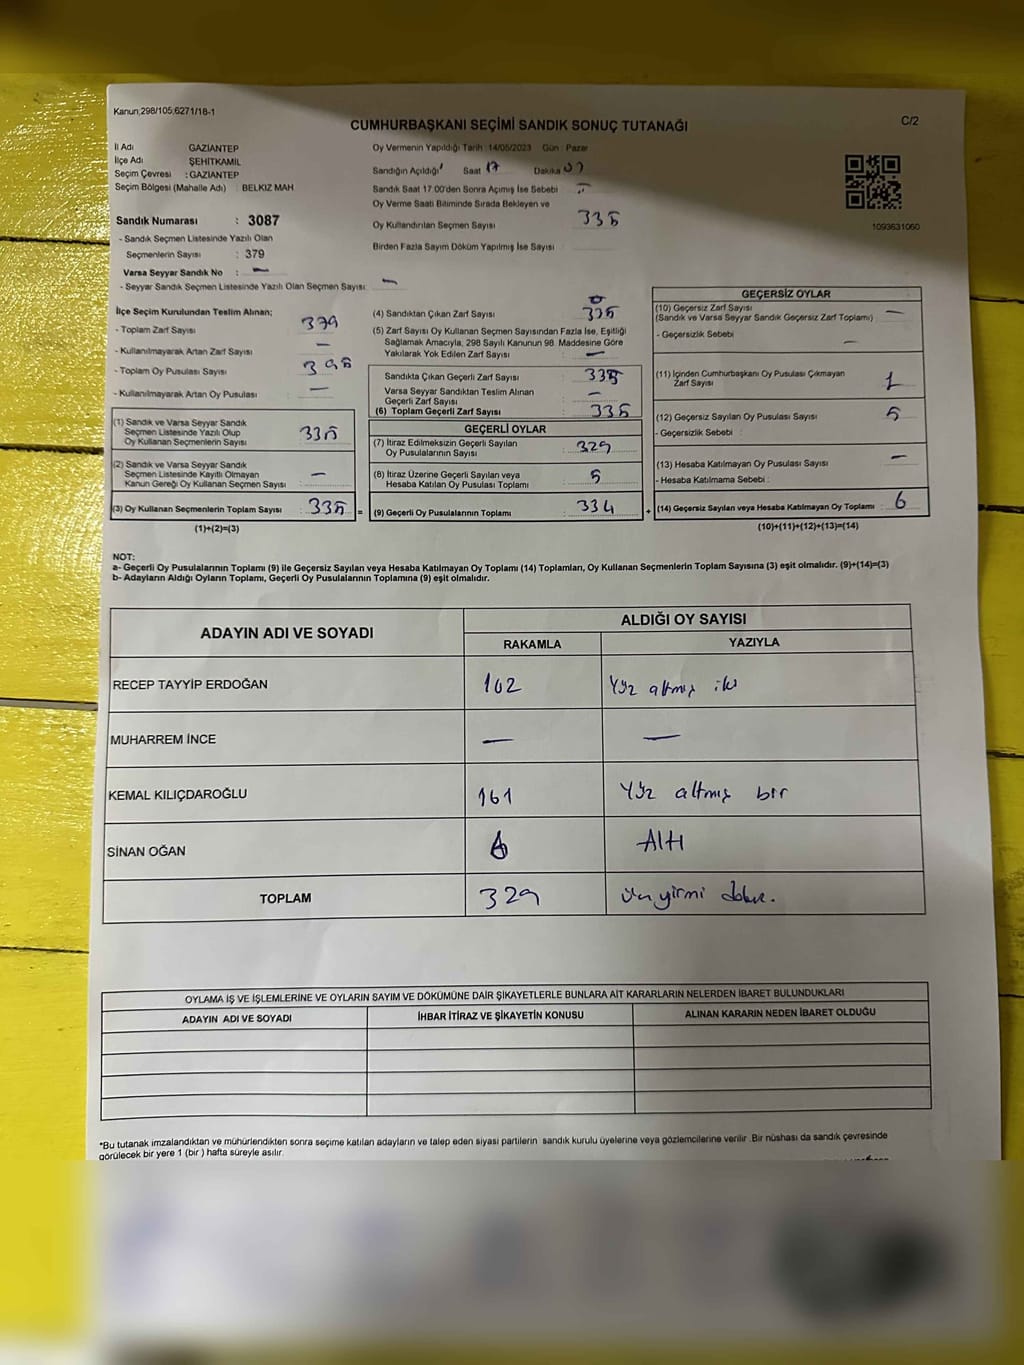 Kanun;298/105;6271/18-1
C/2
CUMHURBAŞKANI SEÇİMİ SANDIK SONUÇ TUTANAĞI
İl Adı GAZİANTEP
İlçe Adı ŞEHİTKAMİL
Seçim Çevresi : GAZİANTEP
Seçim Bölgesi (Mahalle Adı) : BELKIZ MAH
Sandık Numarası : 3087
- Sandık Seçmen Listesinde Yazılı Olan
Seçmenlerin Sayısı : 379
Varsa Seyyar Sandık No : —
- Seyyar Sandık Seçmen Listesinde Yazılı Olan Seçmen Sayısı: —
Oy Vermenin Yapıldığı Tarih :14/05/2023 Gün : Pazar
Sandığın Açıldığı Saat 17 Dakika
Sandık Saat 17.00'den Sonra Açımış İse Sebebi
Oy Verme Saati Bitiminde Sırada Bekleyen ve
Oy Kullandırılan Seçmen Sayısı 335
Birden Fazla Sayım Döküm Yapılmış İse Sayısı
1093631060
İlçe Seçim Kurulundan Teslim Alınan;
- Toplam Zarf Sayısı 379
- Kullanılmayarak Artan Zarf Sayısı —
- Toplam Oy Pusulası Sayısı
- Kullanılmayarak Artan Oy Pusulası : —
(1) Sandık ve Varsa Seyyar Sandık
Seçmen Listesinde Yazılı Olup
Oy Kullanan Seçmenlerin Sayısı : 335
(2) Sandık ve Varsa Seyyar Sandık
Seçmen Listesinde Kayıtlı Olmayan
Kanun Gereği Oy Kullanan Seçmen Sayısı : —
(3) Oy Kullanan Seçmenlerin Toplam Sayısı : 335 =
(1)+(2)=(3)
(4) Sandıktan Çıkan Zarf Sayısı 335
(5) Zarf Sayısı Oy Kullanan Seçmen Sayısından Fazla İse, Eşitliği
Sağlamak Amacıyla, 298 Sayılı Kanunun 98. Maddesine Göre
Yakılarak Yok Edilen Zarf Sayısı : —
Sandıkta Çıkan Geçerli Zarf Sayısı : 335
Varsa Seyyar Sandıktan Teslim Alınan
Geçerli Zarf Sayısı : —
(6) Toplam Geçerli Zarf Sayısı : 335
GEÇERLİ OYLAR
(7) İtiraz Edilmeksizin Geçerli Sayılan
Oy Pusulalarının Sayısı : 329
(8) İtiraz Üzerine Geçerli Sayılan veya
Hesaba Katılan Oy Pusulası Toplamı : 5
(9) Geçerli Oy Pusulalarının Toplamı : 334 +
GEÇERSİZ OYLAR
(10) Geçersiz Zarf Sayısı
(Sandık ve Varsa Seyyar Sandık Geçersiz Zarf Toplamı) —
- Geçersizlik Sebebi : —
(11) İçinden Cumhurbaşkanı Oy Pusulası Çıkmayan
Zarf Sayısı 1
(12) Geçersiz Sayılan Oy Pusulası Sayısı : 5
- Geçersizlik Sebebi :
(13) Hesaba Katılmayan Oy Pusulası Sayısı : —
- Hesaba Katılmama Sebebi :
(14) Geçersiz Sayılan veya Hesaba Katılmayan Oy Toplamı : 6
(10)+(11)+(12)+(13)=(14)
NOT:
a- Geçerli Oy Pusulalarının Toplamı (9) ile Geçersiz Sayılan veya Hesaba Katılmayan Oy Toplamı (14) Toplamları, Oy Kullanan Seçmenlerin Toplam Sayısına (3) eşit olmalıdır. (9)+(14)=(3)
b- Adayların Aldığı Oyların Toplamı, Geçerli Oy Pusulalarının Toplamına (9) eşit olmalıdır.
ADAYIN ADI VE SOYADI
ALDIĞI OY SAYISI
RAKAMLA YAZIYLA
RECEP TAYYİP ERDOĞAN 162 Yüz altmış iki
MUHARREM İNCE — —
KEMAL KILIÇDAROĞLU 161 Yüz altmış bir
SİNAN OĞAN 6 Altı
TOPLAM 329 yirmi
OYLAMA İŞ VE İŞLEMLERİNE VE OYLARIN SAYIM VE DÖKÜMÜNE DAİR ŞİKAYETLERLE BUNLARA AİT KARARLARIN NELERDEN İBARET BULUNDUKLARI
ADAYIN ADI VE SOYADI İHBAR İTİRAZ VE ŞİKAYETİN KONUSU ALINAN KARARIN NEDEN İBARET OLDUĞU
*Bu tutanak imzalandıktan ve mühürlendikten sonra seçime katılan adayların ve talep eden siyasi partilerin sandık kurulu üyelerine veya gözlemcilerine verilir .Bir nüshası da sandık çevresinde
görülecek bir yere 1 (bir ) hafta süreyle asılır.